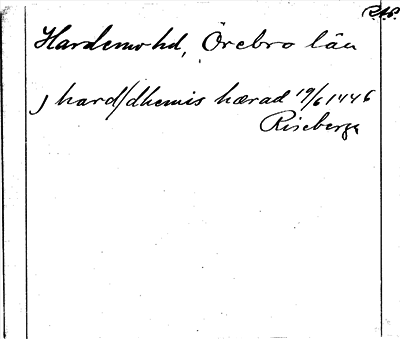 RAP.
Hardemo hd, Örebro län
J hard/dhemis hærad 19/6 1446
Riseberga